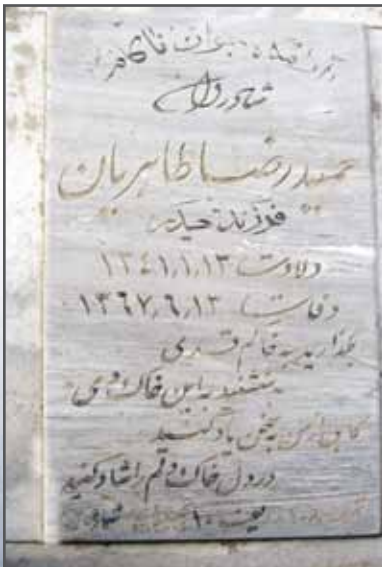 آرامگاه جوان ناکام
شادروان
حمیدرضا طاهریان
فرزند حیدر
ولادت ۱۳۴۱,۱,۱۳
وفات ۱۳۶۷,۶,۱۳
بگذارید به خاکم قدمی
بنشنید به این خاک دمی
گاهی از من به سخن یاد کنید
در دل خاک دلم را شاد کنید